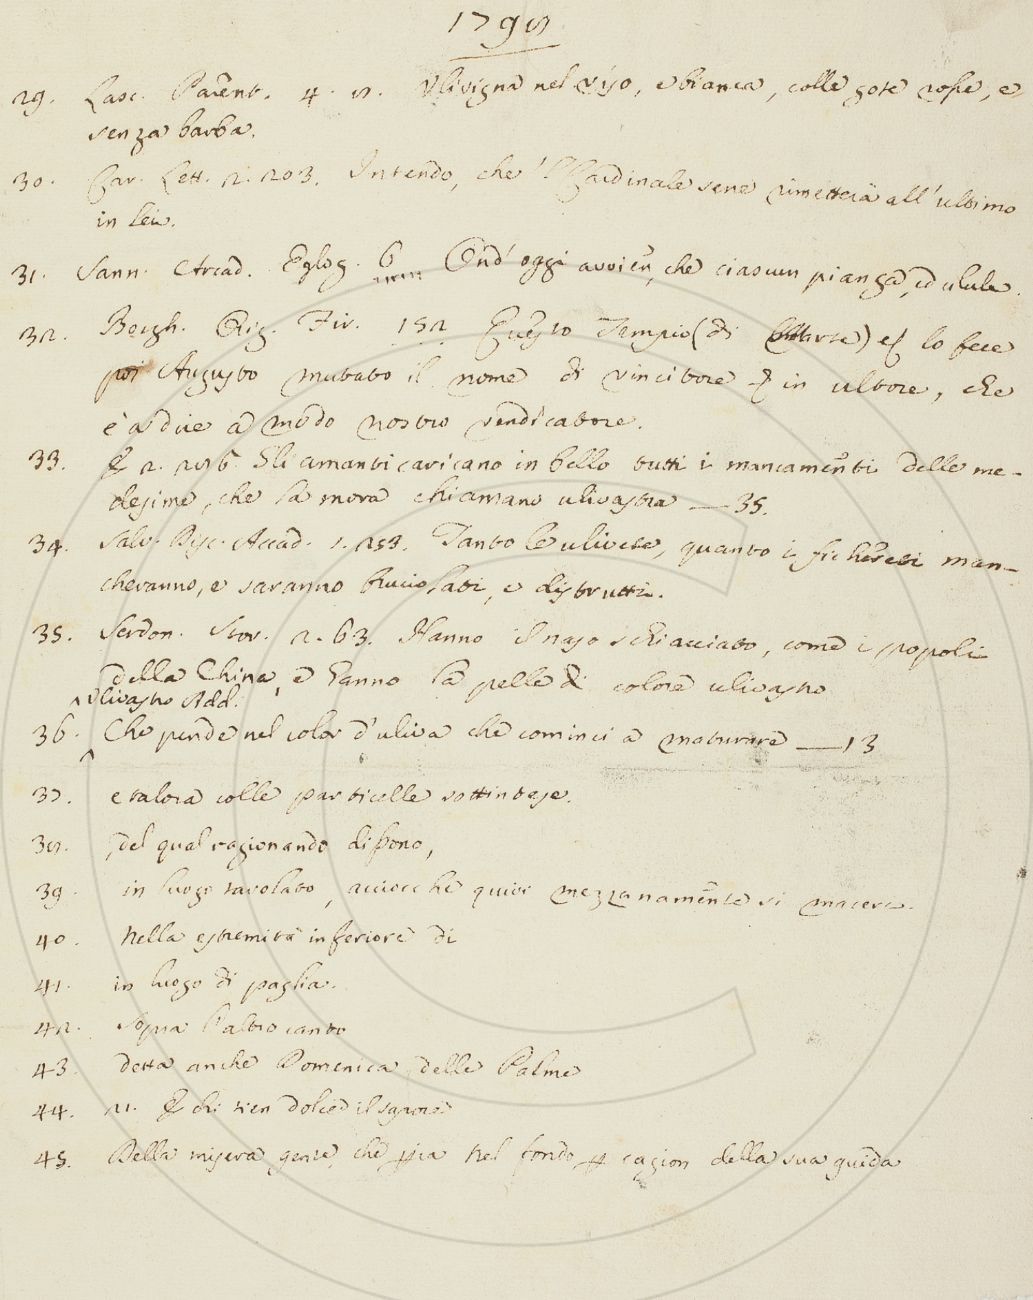 1798
29. Lasc. Parent. 4. 8. Ulivigna nel viso, e bianca, colle gote rosse, e
senza barba.
30. Car. Lett. 2. 203. Intendo, che 'l Cardinale sene rimetterà all'ultimo
in lei.
31. Sann. Arcad. Eglog. 6 Ond' oggi avvien, che ciascun pianga, ed ulule.
32. Borgh. Orig. Fir. 152 Questo Tempio (di Marte) lo fece
poi Augusto mutato il nome di vincitore in ultore, che
è a dire a modo nostro vendicatore.
33. E 2. 286. Gli amanti caricano in bello tutti i mancamenti delle me-
desime, che la mora chiamano ulivastra — 35.
34. Salv. Disc. Accad. 1. 253. Tanto le ulivete, quanto i fichereti man-
cheranno, e saranno bruciolati, e distrutti.
35. Serdon. Stor. 2. 63. Hanno il naso schiacciato, come i popoli
della China, e hanno la pelle di colore ulivastro
Ulivastro Add.
36. Che pende nel color d'uliva che cominci a maturare — 13
37. e talora colle particelle sottintese.
38. , del qual ragionando dissono,
39. in luogo tavolato, acciocchè quivi mezzanamente si maceri.
40. Nella estremità inferiore di
41. in luogo di paglia.
42. Sopra l'altro canto
43. detta anche Domenica delle Palme
44. 21. E chi tien dolce il sapore
45. Della misera gente, che pria nel fondo per cagion della sua guida